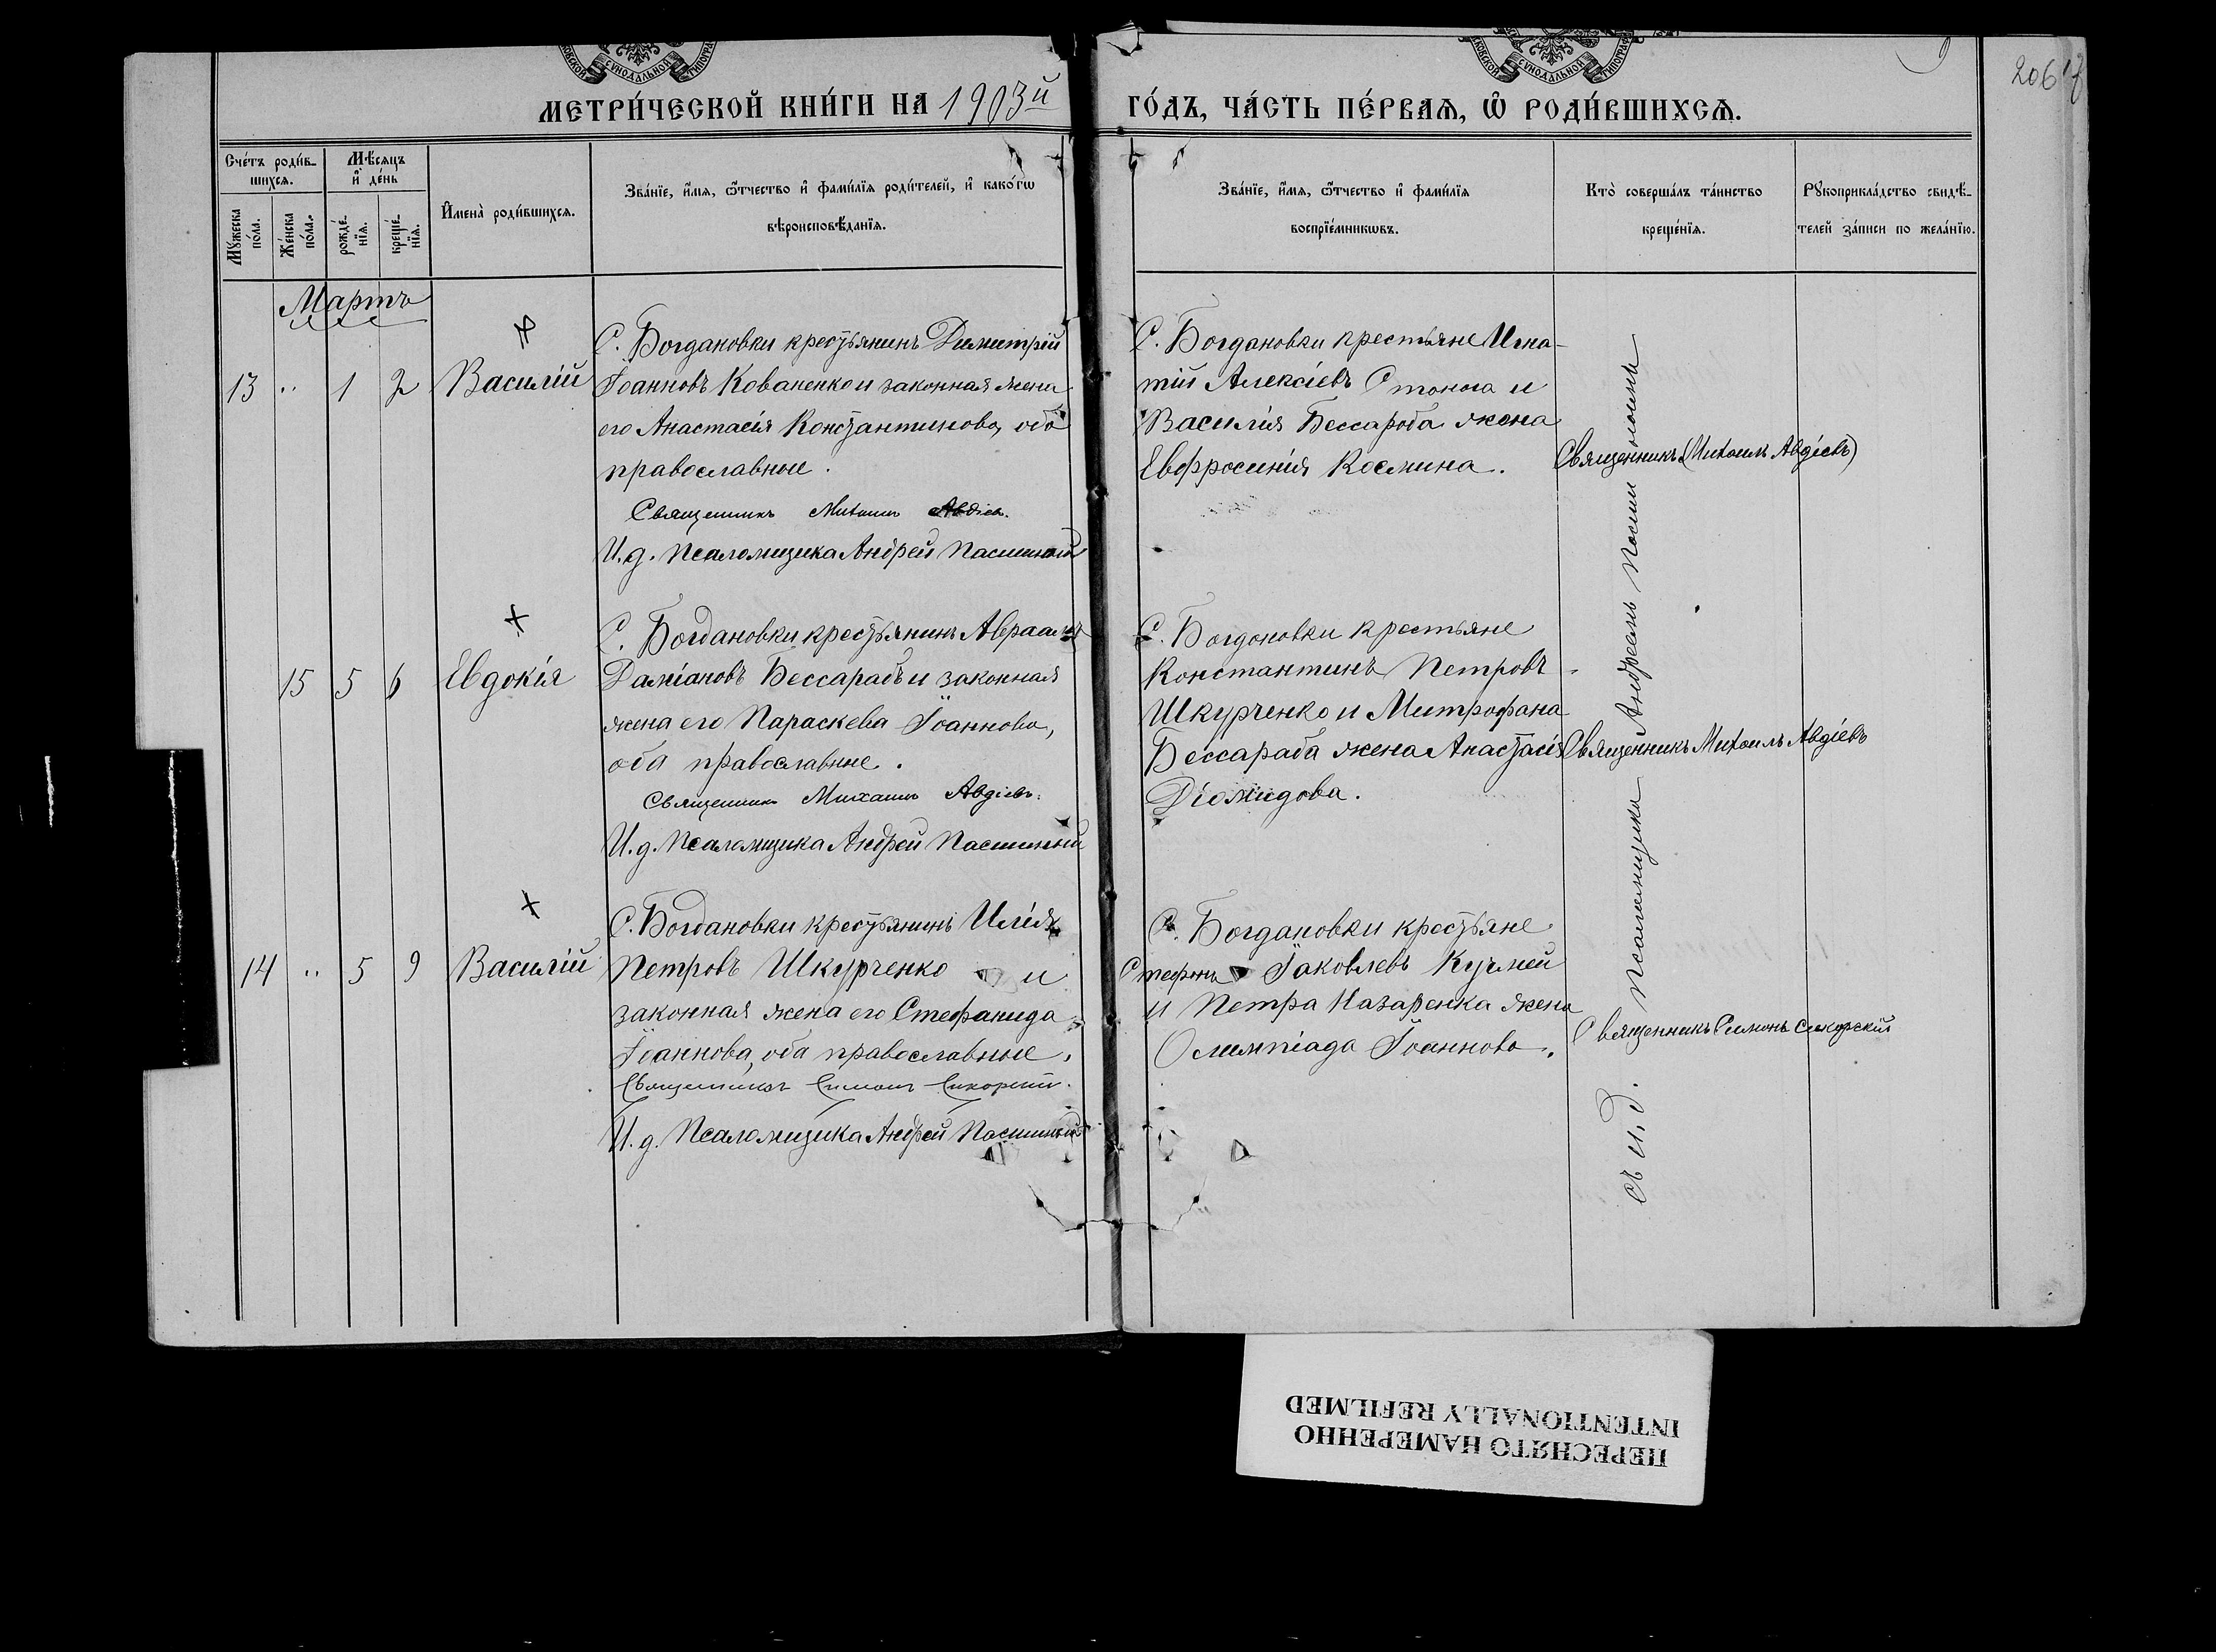 СѴНОДАЛЬНОЙ
СѴНОДАЛЬНОЙ
МЕТРИ́ЧЕСКОЙ КНИ́ГИ НА 1903й
ГО́ДЪ, ЧА́СТЬ ПЕ́РВАЯ, Ѽ РОДИ́ВШИХСЯ.
206
Сче́тъ роди́в-
шихся.
Мѣ́сяцъ
и҆ де́нь
И҆мена̀ роди́вшихся.
Зва́нїе, и҆́мя, ѻ҆́тчество и҆ фами́лїя роди́телей, и҆ како́гѡ
вѣроисповѣ́данїя.
Мꙋ́жеска
по́ла.
Же́нска
по́ла.
рожде́-
нїя.
креще́-
нїя.
Зва́нїе, и҆́мя, ѻ҆́тчество и҆ фами́лїя
воспрїе́мникѡвъ.
Кто̀ соверша́лъ та́инство
креще́нїя.
Рꙋкоприкла́дство свидѣ́-
телей за́писи по жела́нїю.
Мартъ
13 " 1 2 Василій
С. Богдановки крестьянинъ Димитрій
Іоанновъ Кованенко и законная жена
его Анастасія Константинова, оба
православные.
Священникъ Михаилъ Авдіевъ.
И. д. псаломщика Андрей Пасичный
С. Богдановки крестьяне Игна-
тій Алексіевъ Стонога и
Василія Бессараба жена
Евфросинія Космина.
Священникъ (Михаилъ Авдіевъ)
15 5 6 Евдокія
С. Богдановки крестьянинъ Авраамъ
Даміановъ Бессарабъ и законная
жена его Параскева Іоаннова,
оба православные.
Священникъ Михаилъ Авдіевъ.
И. д. Псаломщика Андрей Пасичный
С. Богдановки крестьяне
Константинъ Петровъ
Шкурченко и Митрофана
Бессараба жена Анастасія
Діомидова.
Священникъ Михаилъ Авдіевъ
14 " 5 9 Василій
С. Богдановки крестьянинъ Илія
Петровъ Шкурченко и
законная жена его Стефанида
Іоаннова, оба православные.
Священникъ Симонъ Сикорскій.
И. д. Псаломщика Андрей Пасичный
С. Богдановки крестьяне
Стефанъ Іаковлевъ Кучмей
и Петра Назаренка жена
Олимпіада Іоаннова.
Священникъ Симонъ Сикорскій
съ и. д. псаломщика Андреемъ Пасичнымъ
ПЕРЕСНЯТО НАМЕРЕННО
INTENTIONALLY REFILMED